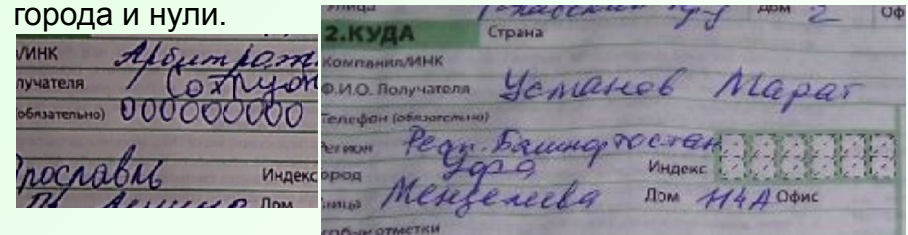 города и нули.
/ИНК Арбитраж.
лучателя Сотрудн
(обязательно) 000000000
Ярославль Индекс
Дом
Улица Дом 2 Оф
2.КУДА Страна
Компания/ИНК
Ф.И.О. Получателя Усманов Марат
Телефон (обязательно)
Регион Респ. Башкортостан
Город Уфа Индекс
Улица Менделеева Дом 114А Офис
Особые отметки